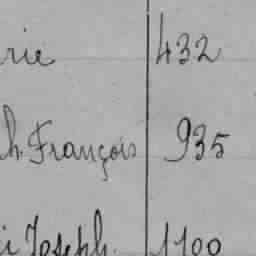 rie 432
h. François 935
i Joseph. 1100